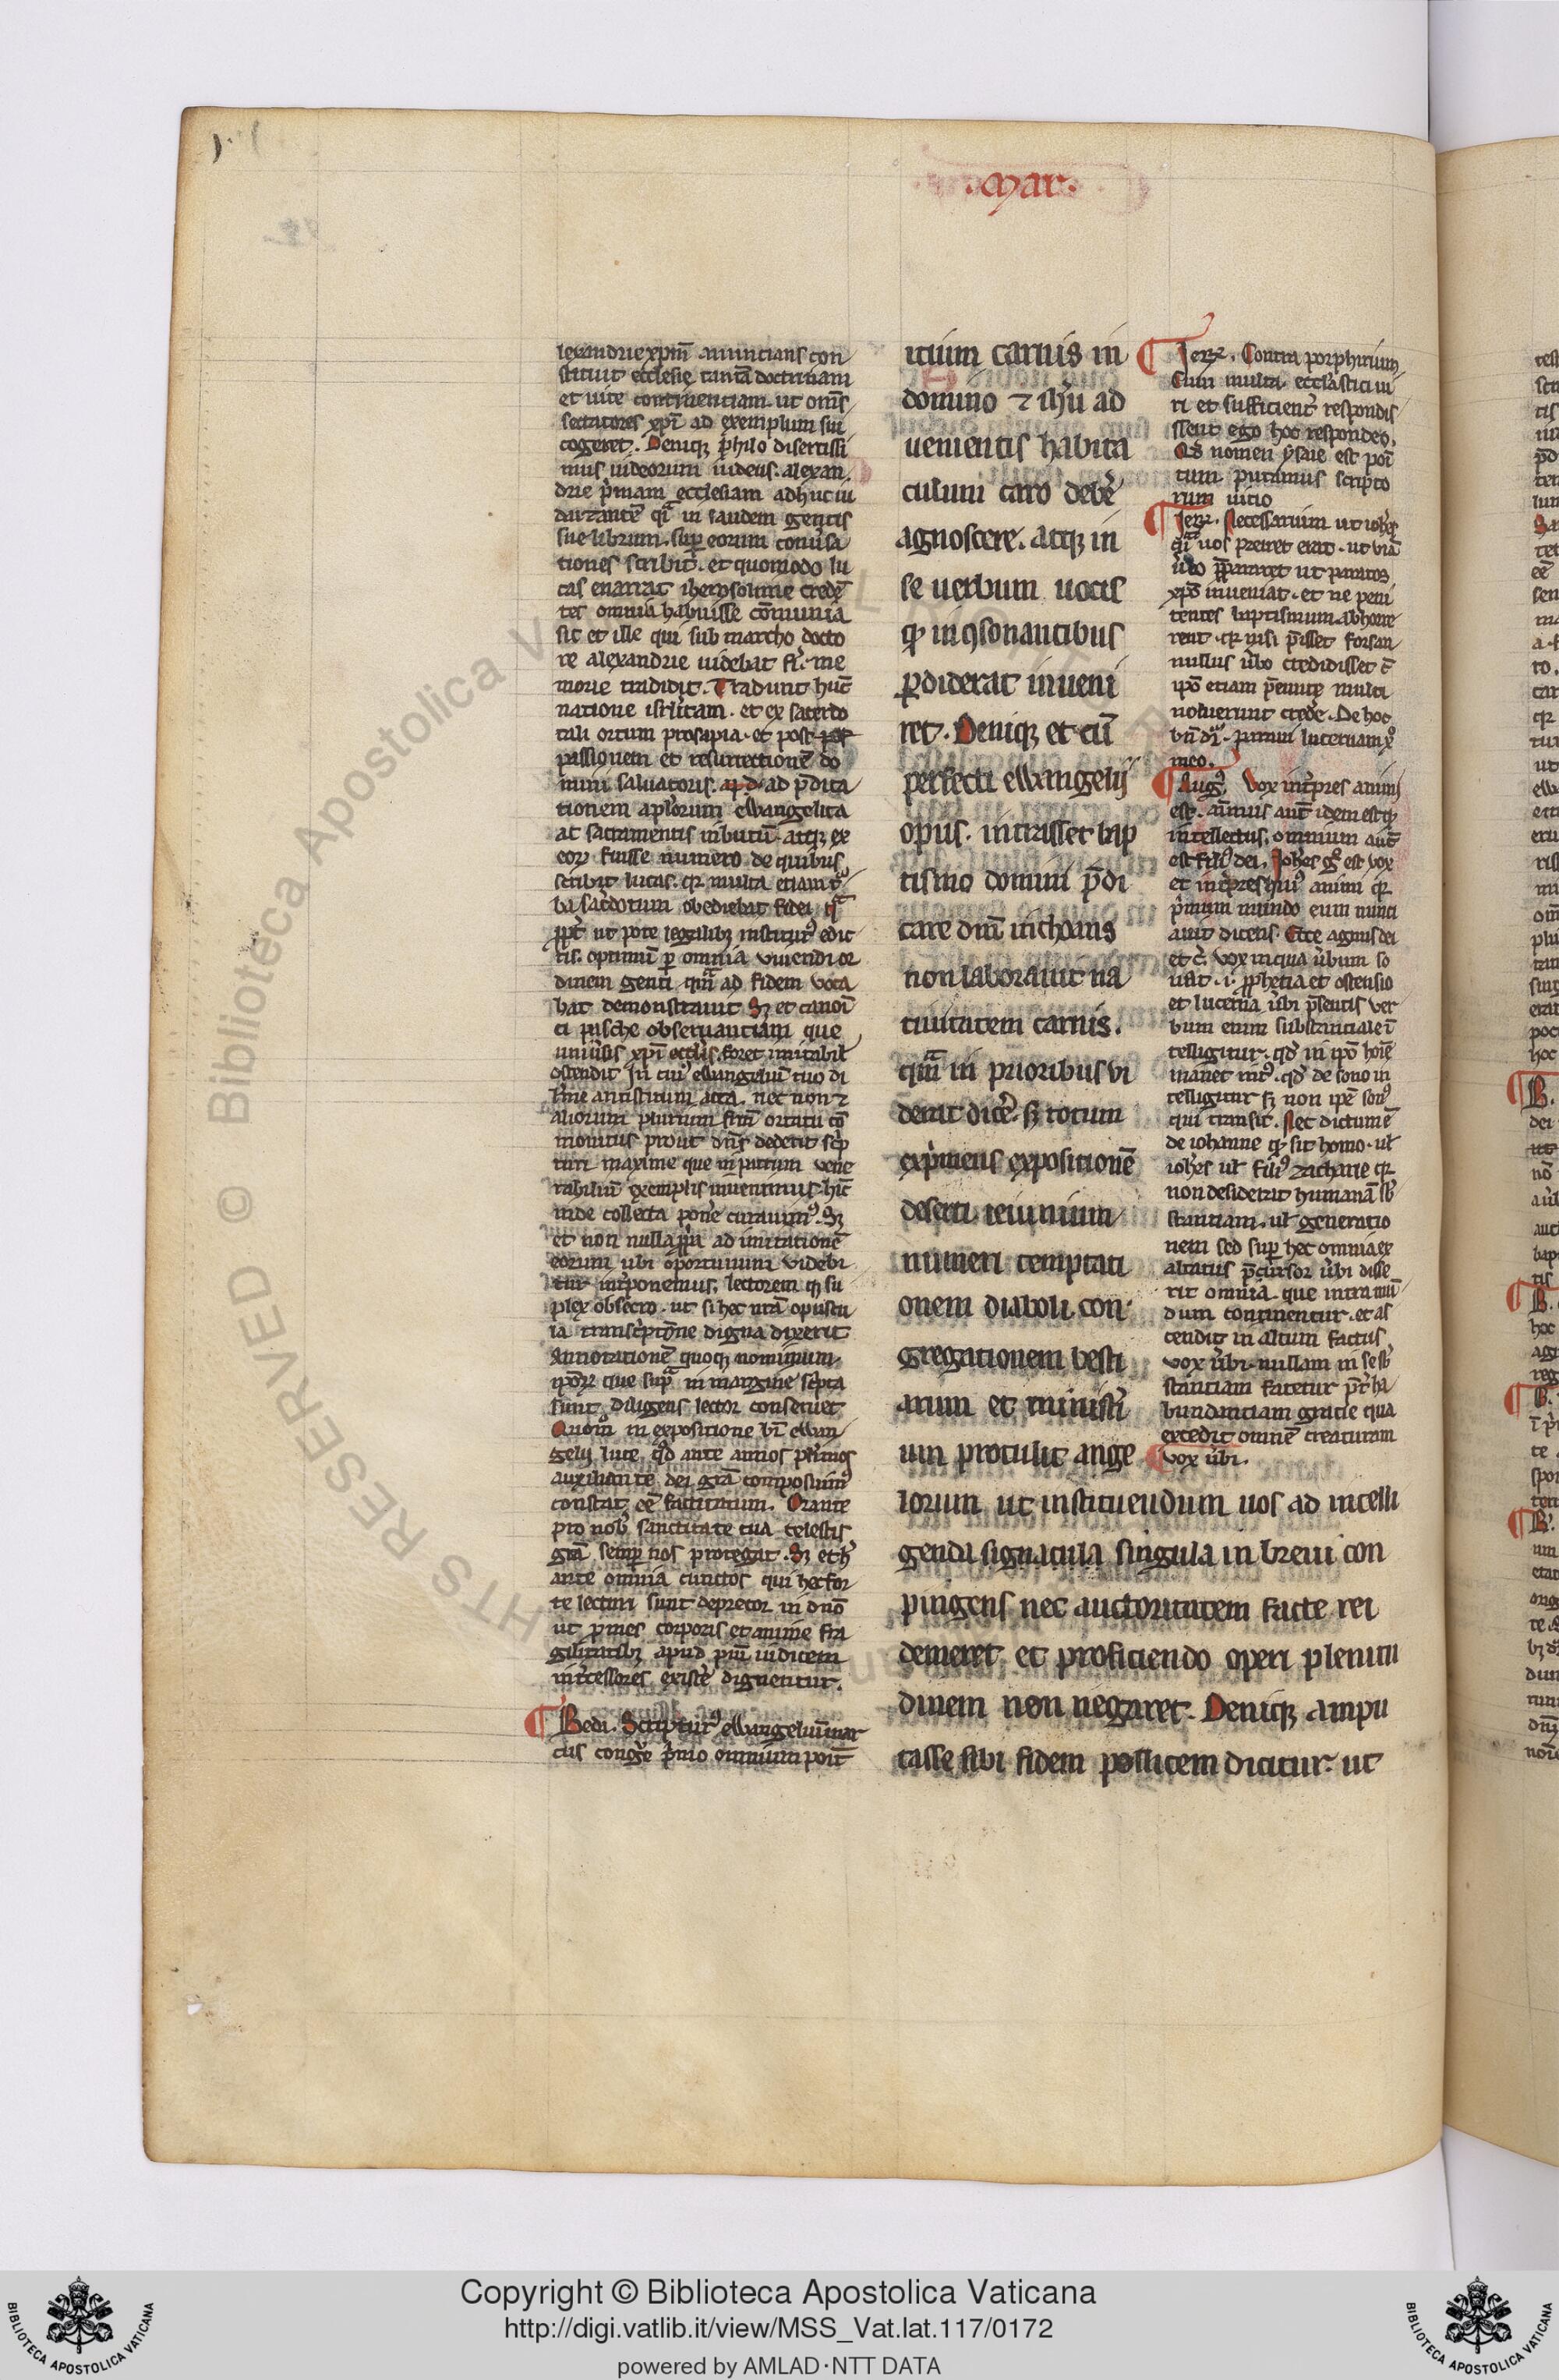 .Mar.
lexandrie xpm̄ annuncians con
stituit ecclesię tantā doctrinam
et uite continentiam. ut om̄s
sectatores xpī ad exemplum sui
cogeret. Deniqꝫ philo disertissi
mus iudeorum uidens. alexan
drie p̄mam ecclesiam adhuc iu
daizantē qͣi in laudem gentis
sue librum. suꝑ eorum conūsa
tiones scribit. et quomodo lu
cas enarrat iherosolime credē
tes omnia habuisse cōmunia
sic et ille qui sub marcho docto
re alexandrie uidebat fiͥ. me
morie tradidit. Tradunt hūc
natione isrlitam. et ex sacerdo
tali ortum prosapia. et post pas
passionem et resurrectionē do
mini saluatoris. ap d. ad p̄dica
tionem apl̄orum ewangelica
ac sacramentis inbutū. atqꝫ ex
eoꝝ fuisse numero de quibus
scribit lucas. qꝛ multa etiam tͬ
ba sac̄dotum obediebat fidei
ut pote legalibꝫ institutꝰ edic
tis. optimū ꝑ omnia viuendi or
dinem genti quā ad fidem voca
bat demonstrauit. Sꝫ et canoni
ci pasche obseruantiam que
uniūsis xpī eccl̄is foret imitabil̄
ostendit. In cuiꝰ ewangeliū tuo di
antistitum acca. nec non ⁊
aliorum plurium frm̄ ortatu cō
monitus prout dn̄s dederit sc̄p
turi maxime que in patrum vene
rabiliū exemplis inuenimus. hic
inde collecta ponē curauimꝰ. Sꝫ
et non nulla ꝓpria ad imitationē
eorum ubi oportunum videbi
tur int̄ponemus. lectorem qꝫ su
plex obsecro. ut si hec nrā opuscu
la transc̄ptione digna dixerit
Annotationē quoqꝫ nominum
ipoꝝ que supͣ in margine sc̄pta
sunt diligens lector conseruet
Quom̊ in expositione bī ewan
gelij luce. qd̄ ante annos plurimos
auxiliante dei grā composuimꝰ
constat eē factitatum. Orante
pro nob̄ sanctitate tua celestis
grā semꝑ nos protegat. Sꝫ et hͦ
ante omnia cunctos qui hec for
te lecturi sunt deprecor in dnō
ut ꝓ meis corporis et anime fra
gilitatibꝫ apud pium iudicem
int̄cessores existē dignentur.
Bedi. Scripturꝰ ewangelium mar
cus congrue p̄mo omnium poīt
itium carnis in
domino ⁊ ih̄u ad
uenientis habita
culum caro debē
agnoscere. atqꝫ in
se uerbum uocis
qͥ in ꝯsonantibus
ꝑdiderat inueni
ret. Deniqꝫ et cū
perfecti ewangelij
opus. intrasset bap
tismo domini p̄di
care dm̄ inchoans
non laborauit na
tiuitatem carnis.
quā in prioribus vi
derat dicē. sꝫ totum
exp̄mens expositionē
deserti. ieiunium
numeri temptati
onem diaboli. con
gregationem besti
arum et ministī
um protulit ange
lorum ut instituendum uos ad intelli
genda signacula singula in breui con
pingens nec auctoritatem facte rei
demeret. et proficiendo operi plenitu
dinem non negaret. Deniqꝫ ampu
tasse sibi fidem pollicem dicitur. ut
Ieꝝ. Contra porphirium
Cum multi. eccl̄astici ui
ri et sufficient̄ respondis
ssent ego hoc respondeo.
Qd̄ nomen ysaie est poī
tum putamus scripto
rum uitio
Ieꝝ. Necessarium ut ioh̄es
qͥ uos preiret erat. ut viā
ūbo pp̄araret ut paratos
xp̄o inueniat. et ne peni
tentes baptismum abhorre
rent. qꝛ nisi p̄isset forsan
nullus ūbo credidisset c̄
ipō etiam p̄eunte multi
noluerunt credē. De hoc
bn̄ dr̄. paraui lucernam xͦ
meo.
Augꝰ. Vox int̄pres animi
est. animus aut̄ idem est qͥ
intellectus. omnium aut̄
est filiꝰ dei. Ioh̄es gͦ est vox
et int̄pres huiꝰ animi qꝛ
p̄mum mundo eum nunci
auit dicens. Ecce agnus dei
et c̄. vox in qua ūbum so
nat .i. ꝓphetia et ostensio
et lucerna ūbi p̄sentis. ver
bum enim substanciale ī
telligitur. qd̄ in ipō hoīe
manet intꝰ. qd̄ de sono in
telligitur sꝫ non ipē sonꝰ
qui transit. Nec dictum ē
de iohanne qͥ sit homo. ul̄
ioh̄es ul̄ filiꝰ zacharie qꝛ
non desiderat humanā sb̄
stantiam. ul̄ generatio
nem sed suꝑ hec omnia ex
altatus p̄cursor ūbi disse
rit omnia. que intra mū
dum continentur. et as
cendit in altum. factus
vox ūbi. nullam in se sb̄
stantiam fatetur p̄t̄ ha
bundanciam gratie qua
excedit omnē creaturam
vox ūbi.
Copyright © Biblioteca Apostolica Vaticana
http://digi.vatlib.it/view/MSS_Vat.lat.117/0172
powered by AMLAD·NTT DATA
BIBLIOTECA APOSTOLICA VATICANA
BIBLIOTECA APOSTOLICA VATICANA